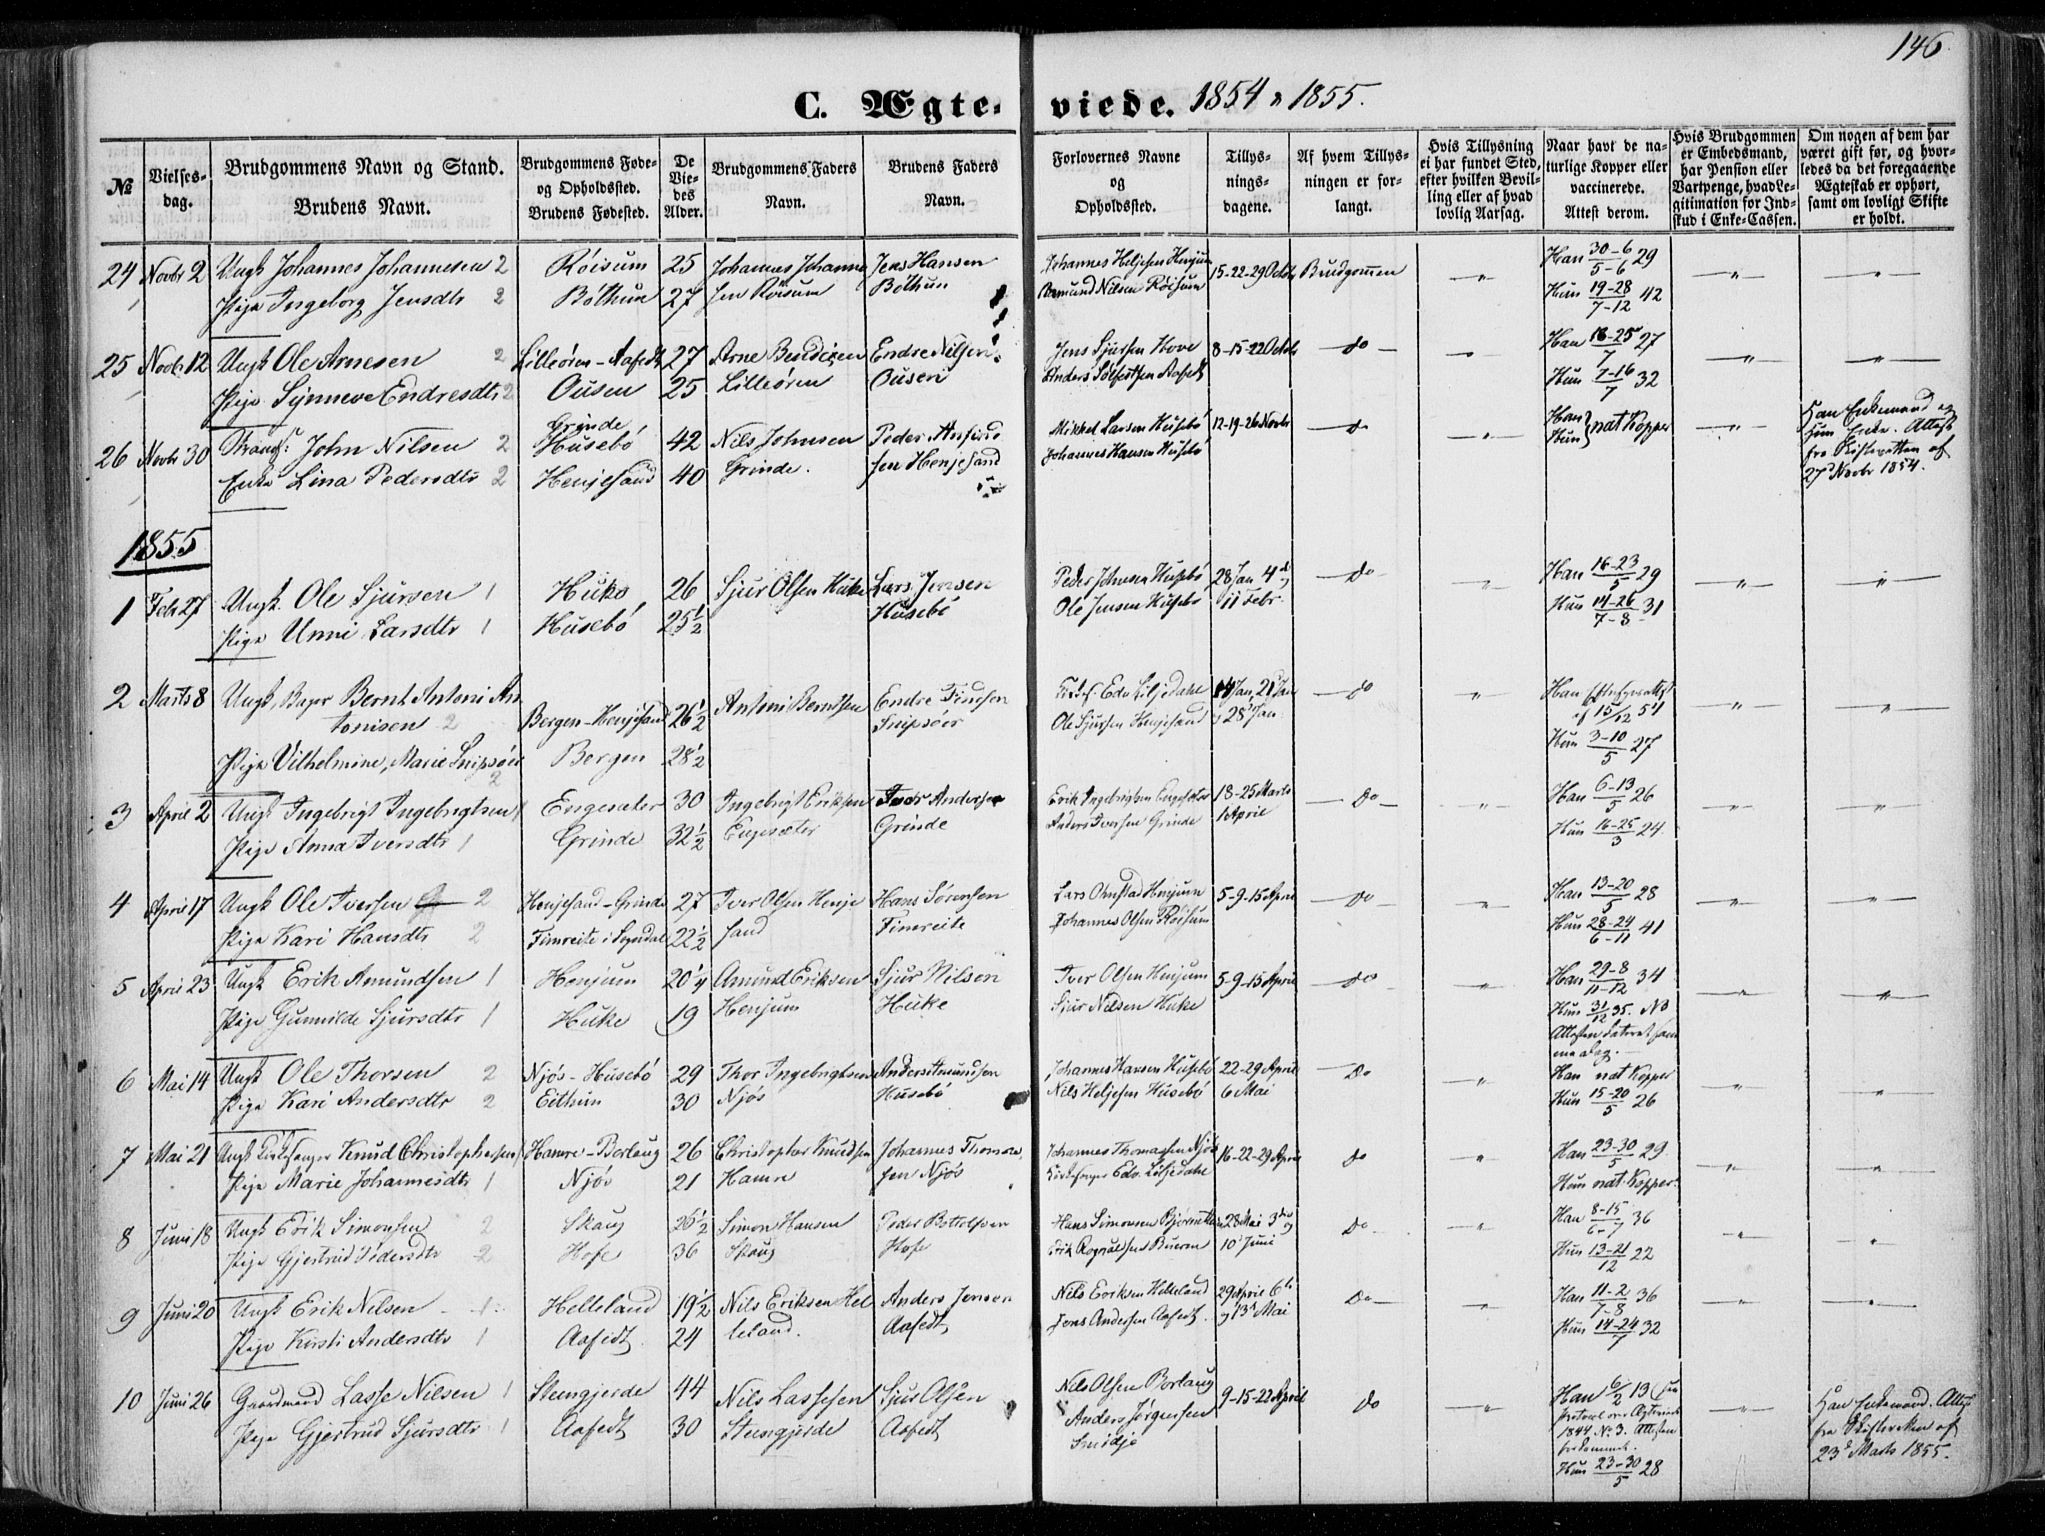 146
C. Ægte- viede. 1854 & 1855.
№
Vielses-dag.
Brudgommens Navn og Stand.
Brudens Navn.
Brudgommens Føde- og Opholdssted.
Brudens Fødested.
De Viedes Alder.
Brudgommens Faders Navn.
Brudens Faders Navn.
Forlovernes Navne og Opholdssted.
Tillysningsdagene.
Af hvem Tillysningen er forlangt.
Hvis Tillysning ei har fundet Sted, efter hvilken Bevilling eller af hvad lovlig Aarsag.
Naar havt de naturlige Kopper eller vaccinerede. Attest derom.
Hvis Brudgommen er Embedsmand, har Pension eller Vartpenge, hvad Legitimation for Indskud i Enke-Cassen.
Om nogen af dem har været gift før, og hvorledes da det foregaaende Ægteskab er ophørt, samt om lovligt Skifte er holdt.
24 Novbr 2 Ungk Johannes Johannesen 2 Röisum 25 Johannes Johanne Jens Hansen Johannes Heljesen Henjum 15-22-29 Octbr Brudgommen " Han 30-6/5-6 29 " "
Pige Ingeborg Jensdtr 2 Böthun 27 sen Röisum Böthun Amund Nilsen Röisum Hun 19-28/7-12 42
25 Novbr 12 Ungk Ole Arnesen 2 Lilleören - Aafedt 27 Arne Bendixen Endre Nilsen Jens Sjursen Hove 8-15-22 Octbr do " Han 18-25/7 27 " "
Pige Synneve Endresdtr 2 Ousen 25 Lilleören Ousen Anders Aafedt Hun 7-16/7 32
26 Novbr 30 John Nilsen 2 Grinde, Husebö 42 Nils Johnsen Peder Anfind Mikkel Larsen Husebö 12-19-26 Novbr do " Han Hun } nat Kopper " Han Enkemand og
Enke Lina Pedersdtr 2 Henjesand 40 Grinde. sen Henjesand Johannes Hansen Husebö Hun Enke. Attest
fra Skifteretten af
27d Novbr 1854.
1855
1 Febr 27 Ungk. Ole Sjursen 1 Huke 26 Sjur Olsen Huke Lars Jensen Peder Johnsen Husebö 28 Jan 4de do " Han 16-23/5 29 " "
Pige Unni Larsdtr 1 Husebö 25½ Husebö Ole Jensen Husebö 11 Febr. Hun 14-26/7-8 31
2 Marts 8 Ungk, Bager Bernt Antoni An Antoni Berntsen Endre Edv Liljedahl 14 Jan, 21 Jan do " Han
tonisen 2 Bergen - Henjesand 26½ Snipsöer Ole Sjursen Henjesand 28 Jan. 15/12 54 " "
Pige Vilhelmine, Marie Snipsöer 2 Bergen 28½ Hun 3-10/5 27
3 April 2 Ungk Ingebrigt Ingebrigtsen 1 Engesæter 30 Ingebrigt Eriksen Iver Andersen Erik Ingebrigtsen Engesæter 18-25 Marts Do " Han 6-13/5 26 " "
Pige Anna Iversdtr 1 Grinde 32½ Engesæter Grinde Anders Iversen Grinde 1 April Hun 16-25/3 24
4 April 17 Ungk Ole Iversen 2 Henjesand - Grinde 27 Iver Olsen Henje Hans Sörensen Lars Ormstad Henjum 5-9-15 April Do " Han 13-20/5 28 " "
Pige Kari Hansdtr 2 Fimreite i Sogndal 22½ sand Fimreite Johannes Olsen Röisum Hun 28-24/6-11 41
5 April 23 Ungk Erik Amundsen 1 Henjum 20¼ Amund Eriksen Sjur Nilsen Iver Olsen Henjum 5-9-15 April do " Han 29-8/11-12 34 " "
Pige Gunnilde Sjursdtr 1 Huke 19 Henjum Huke Sjur Nilsen Huke Hun 31/12 35. NB
Attesten dateret sam
me dag.
6 Mai 14 Ungk Ole Thorsen 2 Njös - Husebö 29 Thor Ingebrigtsen Anders Amundsen Johannes Hansen Husebö 22-29 April Do " Han nat Kopper " "
Pige Kari Andersdtr 2 Eithun 30 Njös Husebö Nils Heljesen Husebö 6 Mai Hun 15-20/5 26
7 Mai 21 Ungk Kirkesanger Knud Christophersen 1 Hamre - Borlaug 26 Christopher Knudsen Johannes Thomas Johannes Thomassen Njös 16-22-29 April do " Han 23-30/5 29 " "
Pige Marie Johannesdtr 1 Njös 21 Hamre sen Njös Kirkesanger Edv Liljedahl Hun nat. Kopper.
8 Juni 18 Ungk Erik Simonsen 2 Skaug 26½ Simon Hansen Peder Bottolfsen Hans Simonsen 28 Mai 3die Do " Han 8-15/6-7 36 " "
Pige Gjertrud Pedersdtr 2 Hofe 36 Skaug Hofe Erik 10 Juni Hun 13-21/12 22
9 Juni 20 Ungk Erik Nilsen 1 Helleland 19½ Nils Eriksen Hel Anders Jensen Nils Eriksen Helleland 29 April 6te Do " Han 11-2/7-8 36 " "
Pige Kirsti Andersdtr 1 Aafedt 24 leland. Aafedt, Jens Andersen Aafedt. 13d Mai Hun 14-24/7 32
10 Juni 26 Gaardmand Lasse Nilsen 1 Steengjerde 44 Nils Lassesen Sjur Olsen Nils Olsen Borlaug 9-15-22 April do " Han 6/2 13 " Han Enkemand. Attest
Pige Gjertrud Sjursdtr 1 Aafedt 30 Steengjerde Aafedt Anders Jörgensen Protocol over Ægteviede fra Skifteretten af
Smidje 1844 No 3. Attesten 23d Marts 1855.
Hun 23-30/5 28